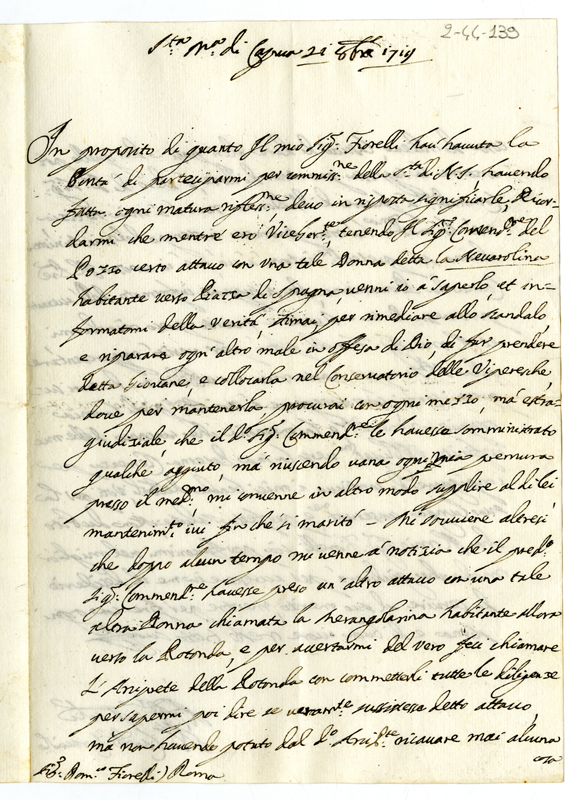 2-44-139
S.ta M.a di Capua 21 8bre 1719
In proposito di quanto Il mio Sig.r Fiorelli hà havuta la
Bontà di parteciparmi per commiss.ne della S.tà di N.S. havendo
fatta ogni matura rifless.ne, devo in risposta significarle, Ricor-
darmi che mentre ero Viceg.te, tenendo Il Sig.r Commend.re del
Pozzo certo attacco con una tale Donna detta la Nevarolina
habitante verso Piazza di Spagna, venni io à saperlo, et in-
formatomi della verità, stimai, per rimediare allo scandalo,
e riparare ogn'altro male in offesa di Dio, di far prendere
detta Giovane, e collocarla nel Conservatorio delle Viperesche,
dove per mantenerla, procurai con ogni mezzo, mà estra-
giudiziale, che il d.o Sig.r Commend.re le havesse somministrato
qualche aggiuto, mà riuscendo vana ogni mia premura
presso il med.mo, mi convenne in altro modo supplire al di lei
mantenim.to ivi fin che si maritò - Mi sovviene altresì
che doppo alcun tempo mi venne à notizia che il pred.o
Sig.r Commend.re havesse preso un'altro attacco con una tale
altra Donna chiamata la Merangolarina habitante allora
verso la Rotonda, e per accertarmi del vero feci chiamare
L'Arciprete della Rotonda con commetterli tutte le diligenze
per sapermi poi dire se veram.te sussistesse detto attacco,
ma non havendo potuto dal d.o Arcip.te ricavare mai alcuna
cosa
Sig.r Dom.co Fiorelli) Roma